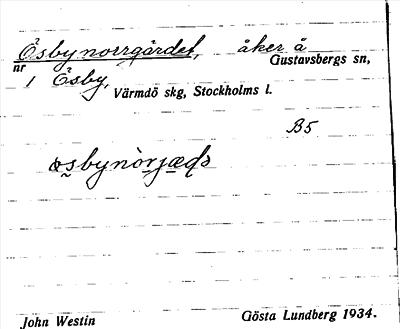 Ösbynorrgärdet, åker å
nr 1 Ösby, Gustavsbergs sn,
Värmdö skg, Stockholms l.
B5
John Westin Gösta Lundberg 1934.